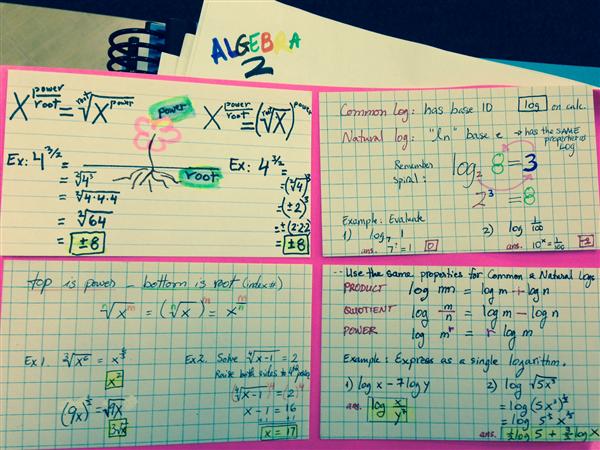 ALGEBRA
2
X^(power/root) = ^root√X^power
power
X^(power/root) = (^root√X)^power
root
Ex: 4^(3/2) =
= ²√4³
= ²√4·4·4
= ²√64
= ±8
Ex: 4^(3/2) =
= (²√4)³
= (±2)³
= ±(2·2·2)
= ±8
Common Log: has base 10 log on calc.
Natural log: "ln" base e → has the SAME properties as LOG
Remember
Spiral:
log₂ 8 = 3
2³ = 8
Example: Evaluate
1) log₇ 1
ans. 7^? = 1 0
2) log 1/100
ans. 10^x = 1/100 -2
top is power - bottom is root (index #)
ⁿ√x^m = (ⁿ√x)^m = x^(m/n)
Ex 1. ³√x⁶ = x^(6/3)
x²
(9x)^(1/2) = √9x
3√x
Ex 2. Solve ⁴√x-1 = 2
Raise both sides to 4th power
(⁴√x-1)⁴ = (2)⁴
x - 1 = 16
x = 17
-- Use the same properties for Common & Natural Logs
PRODUCT log mn = log m + log n
QUOTIENT log m/n = log m - log n
POWER log m^r = r log m
Example: Express as a single logarithm.
1) log x - 7 log y
ans. log x/y⁷
2) log √5x³
= log (5x³)^(1/2)
= log 5^(1/2) x^(3/2)
ans. ½ log 5 + 3/2 log X